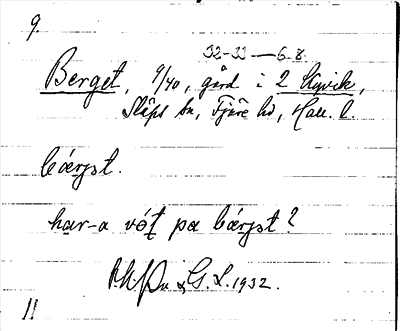 9.
32-33 — 6.8.
Berget, 9/40, gård i 2 Kyvik,
Släps sn, Fjäre hd, Hall. l.
bá́rjst.
har-a vót pa bárjst?
G. L. 1932.
11